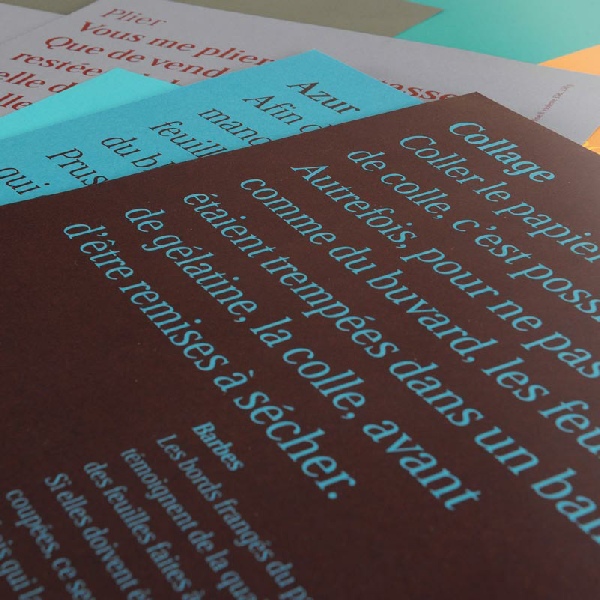 Plier
Vous me plier
Que de vend
restée
elle d
Azur
Afin
manc
feuill
du b
Prus
qui
Collage
Coller le papier
de colle, c'est possi
Autrefois, pour ne pas
comme du buvard, les feu
étaient trempées dans un bain
de gélatine, la colle, avant
d'être remises à sécher.
Barbes
Les bords frangés du p
témoignent de la qua
des feuilles faites à
Si elles doivent ê
coupées, ce se